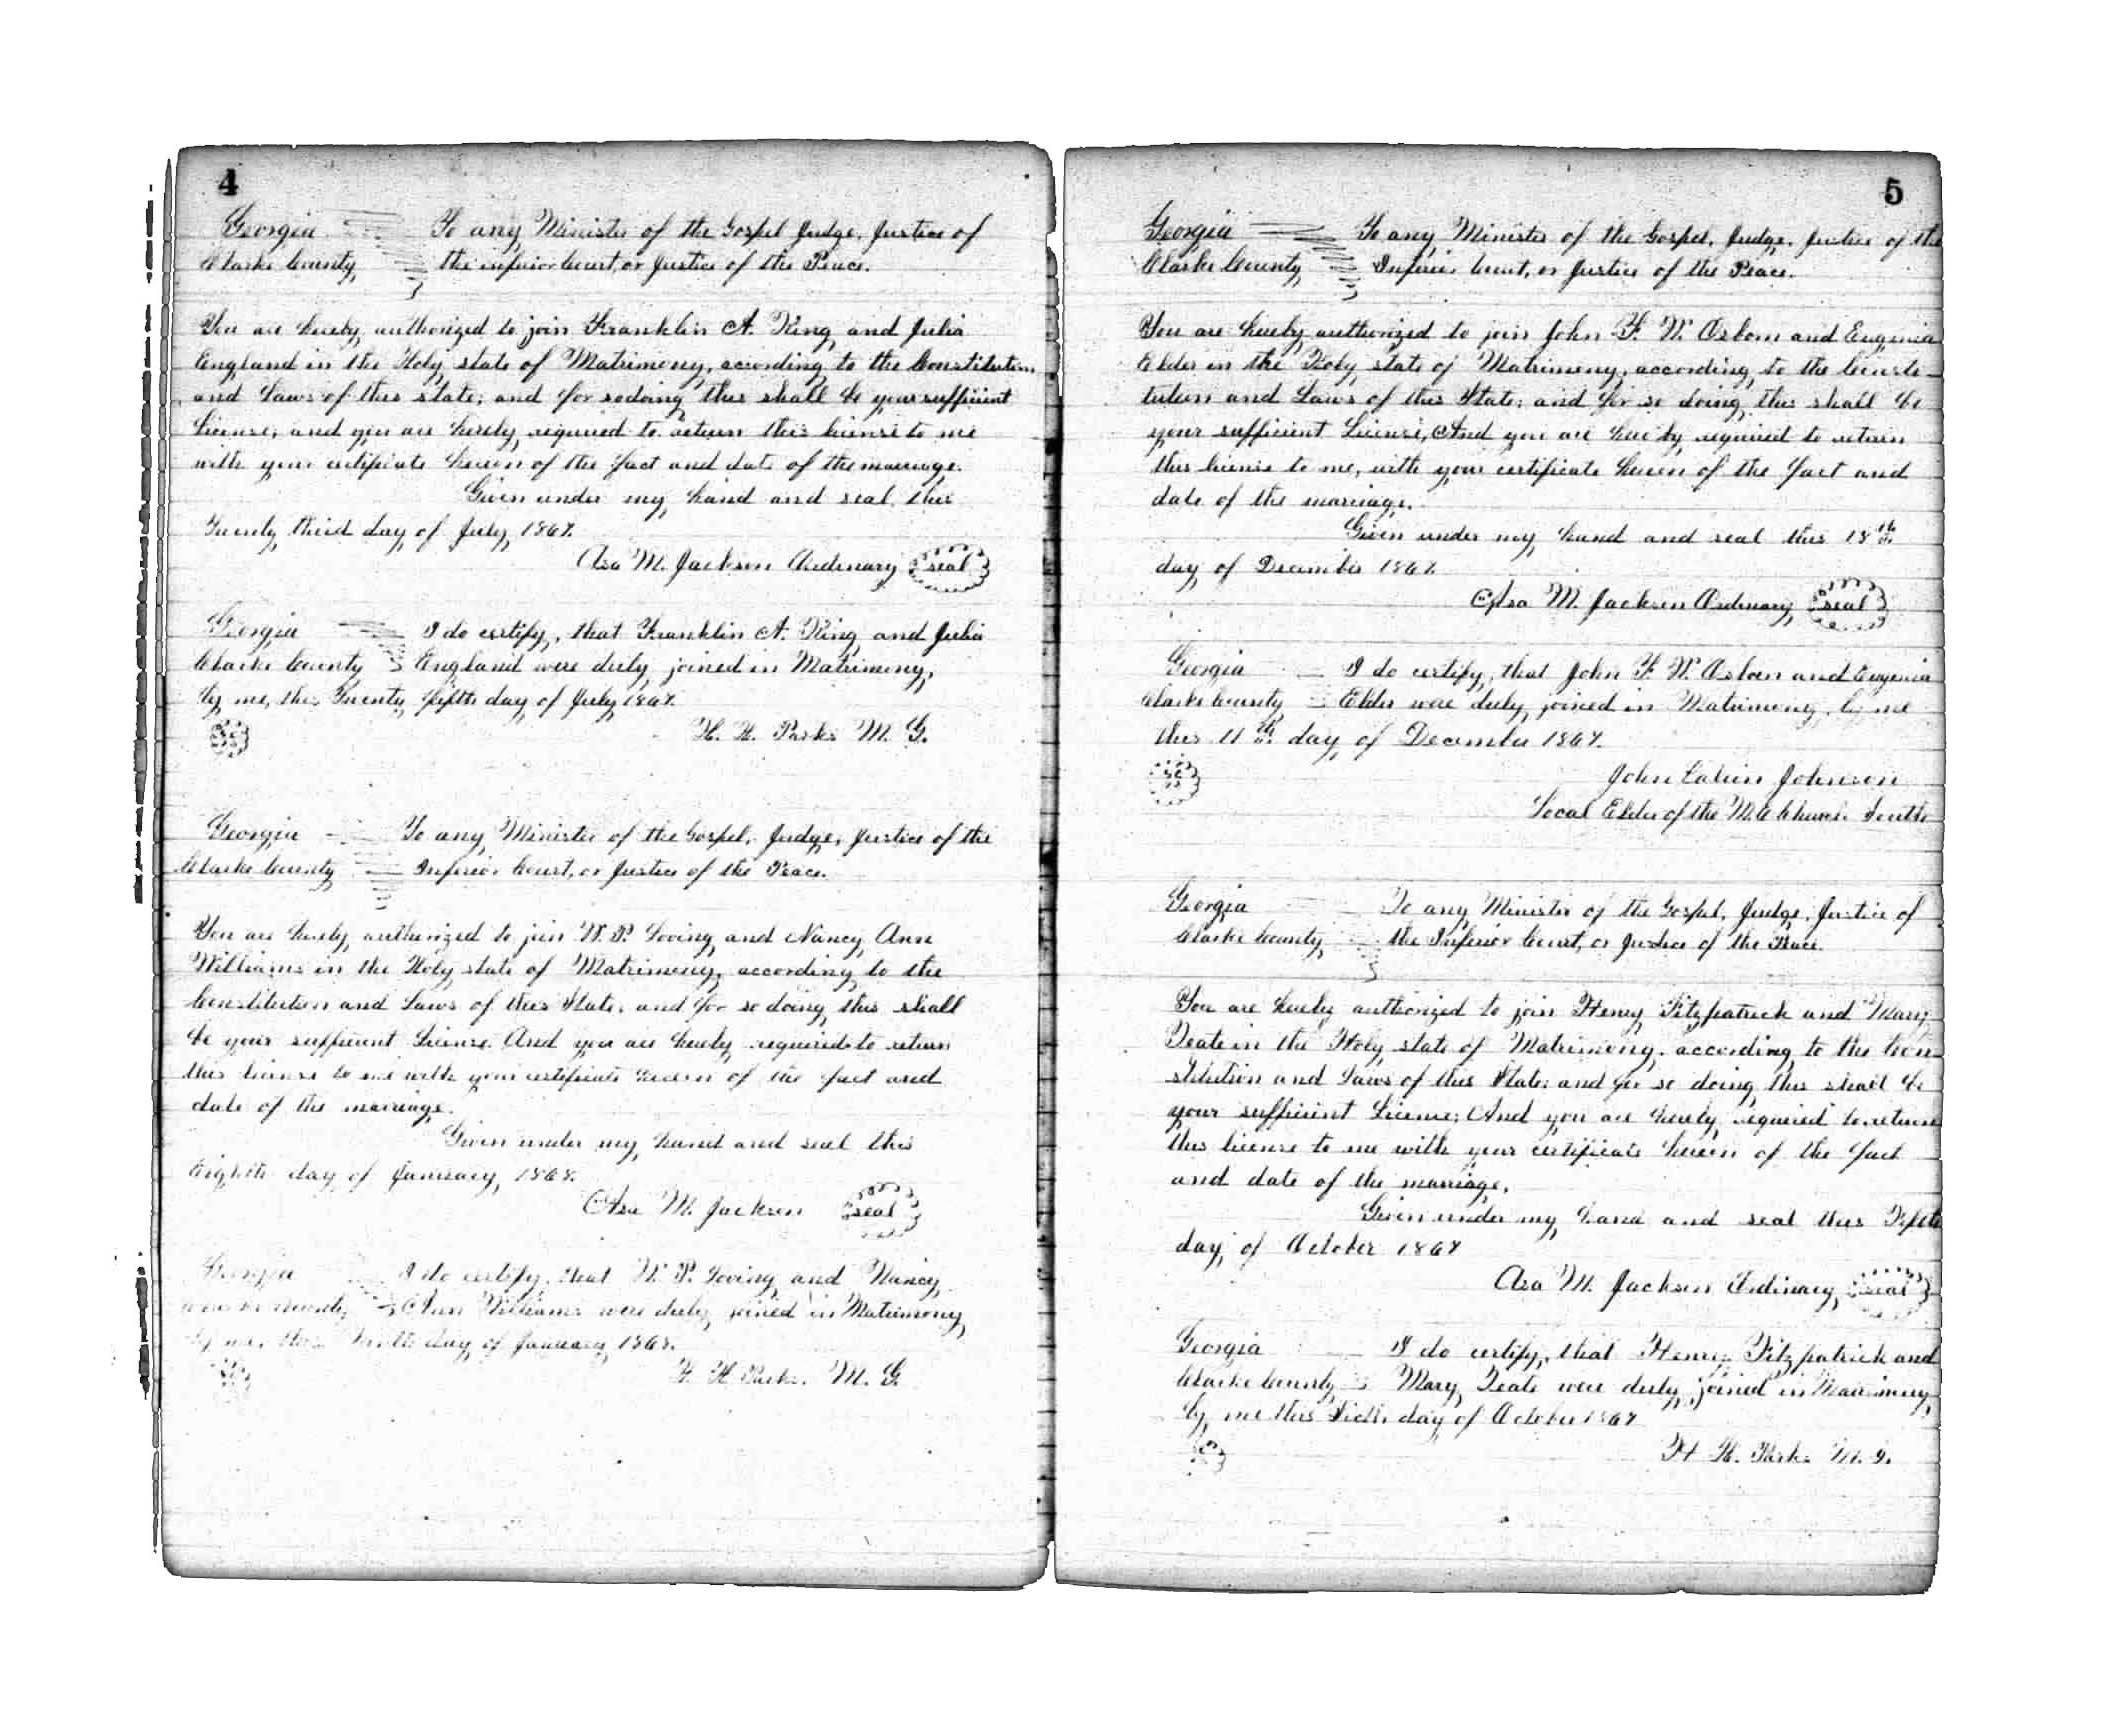 4
Georgia To any Minister of the Gospel Judge, Justice of
Clarke County the inferior Court, or Justice of the Peace.
You are hereby authorized to join Franklin A. King and Julia
England in the Holy state of Matrimony, acording to the Constitution
and Laws of this state; and for sodoing this shall be your suffiient
License; and you are hereby required to return this license to me
with your certificate hereon of the fact and date of the marriage.
Given under my hand and seal this
Twenty third day of July 1867.
Asa M. Jackson Ordinary seal
Georgia I do certify, that Franklin A. King and Julia
Clarke County England were duly joined in Matrimony,
by me, this Twenty fifth day of July 1867.
H. H. Parks M. G.
Georgia To any Minister of the Gospel, Judge, Justice of the
Clarke County Inferior Court, or Justice of the Peace.
You are hereby authorized to join W. P. Loving and Nancy Ann
Williams in the Holy state of Matrimony, according to the
Constitution and Laws of this State, and for so doing this shall
be your suffiient License. And you are hereby required to return
this license to me with your certificate hereon of the fact and
date of the marriage.
Given under my hand and seal this
Eighth day of January, 1868.
Asa M. Jackson seal
Georgia I do certify, that W. P. Loving and Nancy
Clarke County Ann Williams were duly joined in Matrimony
by me, this Ninth day of January 1868.
H. H. Parks. M. G.
5
Georgia To any Minister of the Gospel, Judge, Justice of the
Clarke County Inferior Court, or Justice of the Peace.
You are hereby authorized to join John F. W. Osborn and Eugenia
Elder in the Holy state of Matrimony, according to the Consti-
tution and Laws of this State; and for so doing this shall be
your sufficient License, And you are hereby required to return
this license to me, with your certificate hereon of the fact and
date of the marriage.
Given under my hand and seal this 18th
day of December 1867.
Asa M. Jackson Ordinary seal
Georgia I do certify, that John F. W. Osborn and Eugenia
Clarke County Elder were duly joined in Matrimony, by me
this 11th day of December 1867.
John Johnson
Local Elder of the M.E Church South
Georgia To any Minister of the Gospel, Judge, Justice of
Clarke County, the Inferior Court, or Justice of the Peace.
You are hereby authorized to join Henry Fitzpatrick and Mary
Teat in the Holy state of Matrimony, according to the Con
stitution and Laws of this State; and for so doing this shall be
your suffiient License; And you are hereby required to return
this license to me with your certificate hereon of the fact
and date of the marriage.
Given under my hand and seal this Fifth
day of October 1867
Asa M. Jackson Ordinary seal
Georgia I do certify, that Henry Fitzpatrick and
Clarke County Mary Teat were duly joined in Matrimony,
by me this day of October 1867
H H. Parks M. G.